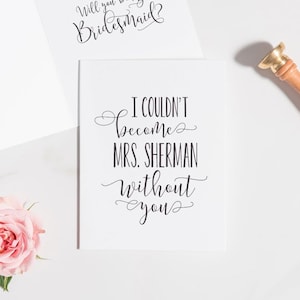 Will you be my
Bridesmaid?
I COULDN'T
become
MRS. SHERMAN
without
you